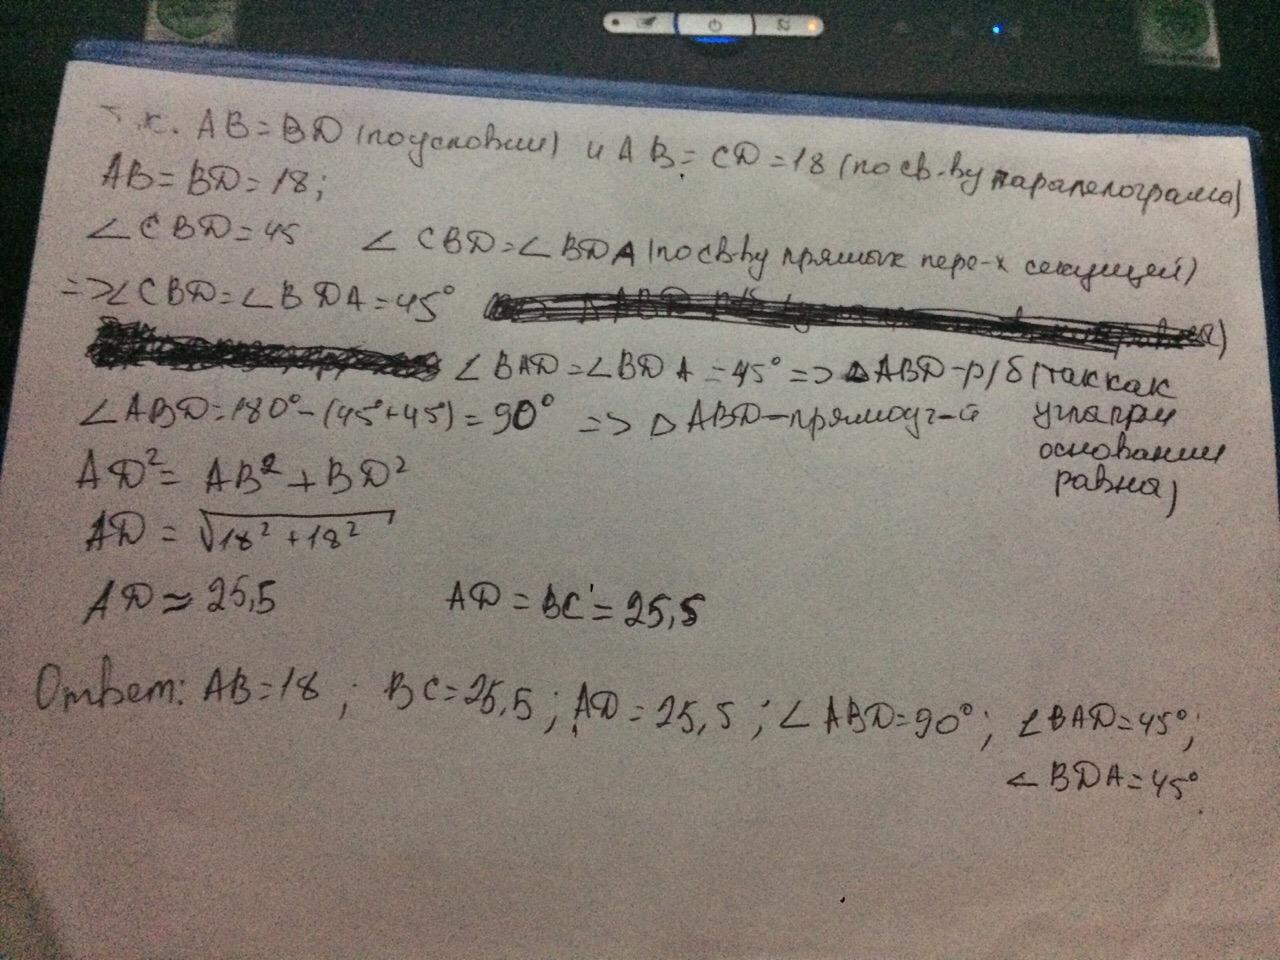 т.к. AB=BD (по условии) и AB=CD=18 (по св-ву паралелограма)
AB=BD=18;
∠CBD=45 ∠CBD=∠BDA (по св-ву прямых пере-х секущей)
=>∠CBD=∠BDA=45°
∠BAD=∠BDA=45° => △ABD-р/б (так как
∠ABD=180°-(45°+45°)=90° => △ABD-прямоуг-й угла при
основании
равна)
AD²=AB²+BD²
AD=√18²+18²
AD≈25,5 AD=BC=25,5
Ответ: AB=18; BC=25,5; AD=25,5; ∠ABD=90°; ∠BAD=45°;
∠BDA=45°